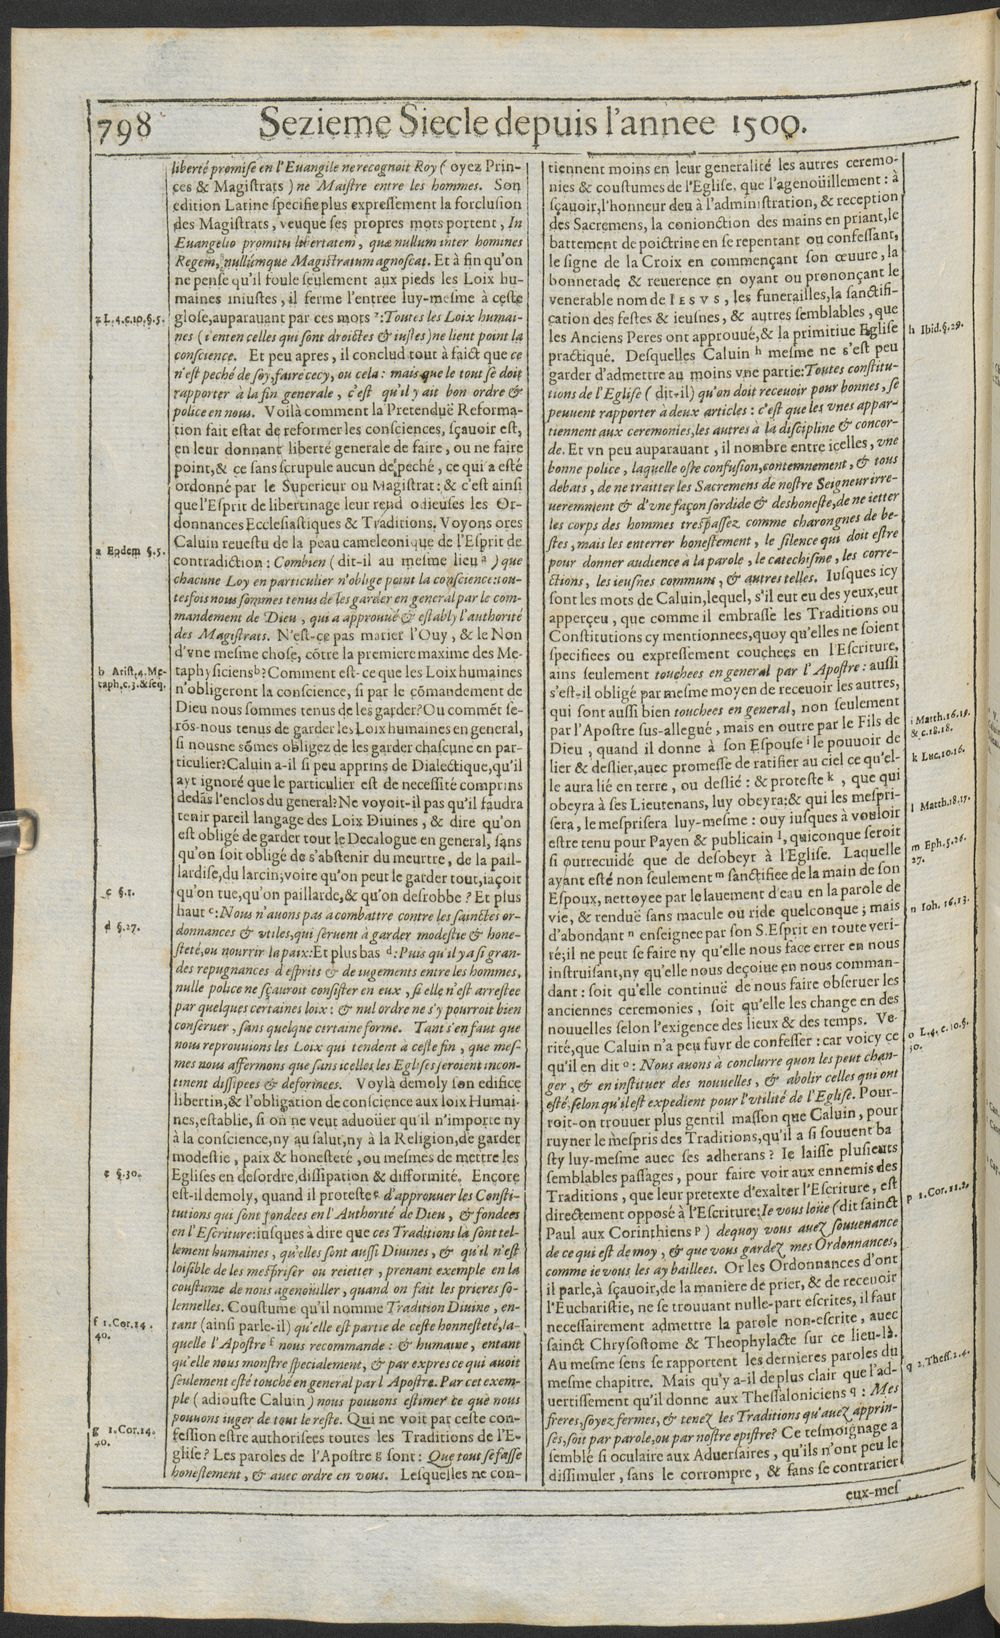 798
Sezieme Siecle depuis l'annee 1500.
liberté promise en l'Euangile ne recognoit Roy (oyez Prin-
ces & Magistrats) ne Maistre entre les hommes. Son
edition Latine specifie plus expressement la forclusion
des Magistrats, veu que ses propres mots portent, In
Euangelio promitti libertatem, quæ nullum inter homines
Regem, nullúmque Magistratum agnoscat. Et à fin qu'on
ne pense qu'il foule seulement aux pieds les Loix hu-
maines iniustes, il ferme l'entree luy-mesme à ceste
glose, auparauant par ces mots z: Toutes les Loix humai-
nes (i'enten celles qui sont droictes & iustes) ne lient point la
conscience. Et peu apres, il conclud tout à faict que ce
n'est peché de soy, faire cecy, ou cela: mais que le tout se doit
rapporter à la fin generale, c'est qu'il y ait bon ordre &
police en nous. Voilà comment la Pretenduë Reforma-
tion fait estat de reformer les consciences, sçauoir est,
en leur donnant liberté generale de faire, ou ne faire
point, & ce sans scrupule aucun de peché, ce qui a esté
ordonné par le Superieur ou Magistrat: & c'est ainsi
que l'Esprit de libertinage leur rend odieuses les Or-
donnances Ecclesiastiques & Traditions. Voyons ores
Caluin reuestu de la peau cameleonique de l'Esprit de
contradiction: Combien (dit-il au mesme lieu a) que
chacune Loy en particulier n'oblige point la conscience: tou-
tesfois nous sommes tenus de les garder en general par le com-
mandement de Dieu, qui a approuué & estably l'authorité
des Magistrats. N'est-ce pas marier l'Ouy, & le Non
d'vne mesme chose, cõtre la premiere maxime des Me-
taphysiciens b? Comment est-ce que les Loix humaines
n'obligeront la conscience, si par le cõmandement de
Dieu nous sommes tenus de les garder? Ou commẽt se-
rõs-nous tenus de garder les Loix humaines en general,
si nous ne sõmes obligez de les garder chascune en par-
ticulier? Caluin a-il si peu apprins de Dialectique, qu'il
ayt ignoré que le particulier est de necessité comprins
dedãs l'enclos du general? Ne voyoit-il pas qu'il faudra
tenir pareil langage des Loix Diuines, & dire qu'on
est obligé de garder tout le Decalogue en general, sans
qu'on soit obligé de s'abstenir du meurtre, de la pail-
lardise, du larcin; voire qu'on peut le garder tout, iaçoit
qu'on tue, qu'on paillarde, & qu'on desrobbe? Et plus
haut c: Nous n'auons pas a combattre contre les sainctes or-
donnances & vtiles, qui seruent à garder modestie & hone-
steté, ou nourrir la paix: Et plus bas d: Puis qu'il y a si gran-
des repugnances d'esprits & de iugements entre les hommes,
nulle police ne sçauroit consister en eux, si elle n'est arrestee
par quelques certaines loix: & nul ordre ne s'y pourroit bien
conseruer, sans quelque certaine forme. Tant s'en faut que
nous reprouuions les Loix qui tendent à ceste fin, que mes-
mes nous affermons que sans icelles les Eglises seroient incon-
tinent dissipees & deformees. Voylà demoly son edifice
libertin, & l'obligation de conscience aux loix Humai-
nes, establie, si on ne veut aduoüer qu'il n'importe ny
à la conscience, ny au salut, ny à la Religion, de garder
modestie, paix & honesteté, ou mesmes de mettre les
Eglises en desordre, dissipation & difformité. Encore
est-il demoly, quand il proteste e d'approuuer les Consti-
tutions qui sont fondees en l'Authorité de Dieu, & fondees
en l'Escriture: iusques à dire que ces Traditions là sont tel-
lement humaines, qu'elles sont aussi Diuines, & qu'il n'est
loisible de les mespriser ou reietter, prenant exemple en la
coustume de nous agenoüiller, quand on fait les prieres so-
lennelles. Coustume qu'il nomme Tradition Diuine, en-
tant (ainsi parle-il) qu'elle est partie de ceste honnesteté, la-
quelle l'Apostre f nous recommande: & humaine, entant
qu'elle nous monstre specialement, & par expres ce qui auoit
seulement esté touché en general par l'Apostre. Par cet exem-
ple (adiouste Caluin) nous pouuons estimer ce que nous
pouuons iuger de tout le reste. Qui ne voit par ceste con-
fession estre authorisees toutes les Traditions de l'E-
glise? Les paroles de l'Apostre g sont: Que tout se fasse
honestement, & auec ordre en vous. Lesquelles ne con-
z L.4.c.10.§.5.
a Eodem §.5.
b Arist.4.Me-
taph.c.3.&seq.
c §.1.
d §.27.
e §.30.
f 1.Cor.14.
40.
g 1.Cor.14.
40.
tiennent moins en leur generalité les autres ceremo-
nies & coustumes de l'Eglise, que l'agenoüillement: à
sçauoir, l'honneur deu à l'administration, & reception
des Sacremens, la conionction des mains en priant, le
battement de poictrine en se repentant ou confessant,
le signe de la Croix en commençant son œuure, la
bonnetade & reuerence en oyant ou prononçant le
venerable nom de IESVS, les funerailles, la sanctifi-
cation des festes & ieusnes, & autres semblables, que
les Anciens Peres ont approuué, & la primitiue Eglise
practiqué. Desquelles Caluin h mesme ne s'est peu
garder d'admettre au moins vne partie: Toutes constitu-
tions de l'Eglise (dit-il) qu'on doit receuoir pour bonnes, se
peuuent rapporter à deux articles: c'est que les vnes appar-
tiennent aux ceremonies, les autres à la discipline & concor-
de. Et vn peu auparauant, il nombre entre icelles, vne
bonne police, laquelle oste confusion, contemnement, & tous
debats, de ne traitter les Sacremens de nostre Seigneur irre-
ueremment & d'vne façon sordide & deshoneste, de ne ietter
les corps des hommes trespassez comme charongnes de be-
stes, mais les enterrer honestement, le silence qui doit estre
pour donner audience à la parole, le catechisme, les corre-
ctions, les ieusnes communs, & autres telles. Iusques icy
sont les mots de Caluin, lequel, s'il eut eu des yeux, eut
apperçeu, que comme il embrasse les Traditions ou
Constitutions cy mentionnees, quoy qu'elles ne soient
specifiees ou expressement couchees en l'Escriture,
ains seulement touchees en general par l'Apostre: aussi
s'est-il obligé par mesme moyen de receuoir les autres,
qui sont aussi bien touchees en general, non seulement
par l'Apostre sus-allegué, mais en outre par le Fils de
Dieu, quand il donne à son Espouse i le pouuoir de
lier & deslier, auec promesse de ratifier au ciel ce qu'el-
le aura lié en terre, ou deslié: & proteste k, que qui
obeyra à ses Lieutenans, luy obeyra: & qui les mespri-
sera, le mesprisera luy-mesme: ouy iusques à vouloir
estre tenu pour Payen & publicain l, quiconque seroit
si outrecuidé que de desobeyr à l'Eglise. Laquelle
ayant esté non seulement m sanctifiee de la main de son
Espoux, nettoyee par le lauement d'eau en la parole de
vie, & renduë sans macule ou ride quelconque; mais
d'abondant n enseignee par son S. Esprit en toute veri-
té; il ne peut se faire ny qu'elle nous face errer en nous
instruisant, ny qu'elle nous deçoiue en nous comman-
dant: soit qu'elle continuë de nous faire obseruer les
anciennes ceremonies, soit qu'elle les change en des
nouuelles selon l'exigence des lieux & des temps. Ve-
rité, que Caluin n'a peu fuyr de confesser: car voicy ce
qu'il en dit o: Nous auons à conclurre qu'on les peut chan-
ger, & en instituer des nouuelles, & abolir celles qui ont
esté, selon qu'il est expedient pour l'vtilité de l'Eglise. Pour-
roit-on trouuer plus gentil masson que Caluin, pour
ruyner le mespris des Traditions, qu'il a si souuent ba
sty luy-mesme auec ses adherans? Ie laisse plusieurs
semblables passages, pour faire voir aux ennemis des
Traditions, que leur pretexte d'exalter l'Escriture, est
directement opposé à l'Escriture: Ie vous loüe (dit sainct
Paul aux Corinthiens p) dequoy vous auez souuenance
de ce qui est de moy, & que vous gardez mes Ordonnances,
comme ie vous les ay baillees. Or les Ordonnances d'ont
il parle, à sçauoir, de la maniere de prier, & de receuoir
l'Eucharistie, ne se trouuant nulle-part escrites, il faut
necessairement admettre la parole non-escrite, auec
sainct Chrysostome & Theophylacte sur ce lieu-là.
Au mesme sens se rapportent les dernieres paroles du
mesme chapitre. Mais qu'y a-il de plus clair que l'ad-
uertissement qu'il donne aux Thessaloniciens q: Mes
freres, soyez fermes, & tenez les Traditions qu'auez apprin-
ses, soit par parole, ou par nostre epistre? Ce tesmoignage a
semblé si oculaire aux Aduersaires, qu'ils n'ont peu le
dissimuler, sans le corrompre, & sans se contrarier
eux-mes
h Ibid.§.29.
i Matth.16.19.
& c.18.18.
k Luc.10.16.
l Matth.18.17.
m Eph.5.26.
27.
n Ioh. 16.13.
o L.4.c.10.§.
30.
p 1.Cor.11.2.
q 2.Thess.2.4.